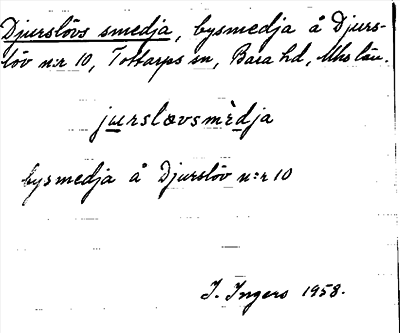 Djurslövs smedja, bysmedja å Djurs-
löv n:r 10, Tottarps sn, Bara hd, Mhs län.
jurslovsmèdja
bysmedja å Djurslöv n:r 10
I. Ingers 1958.